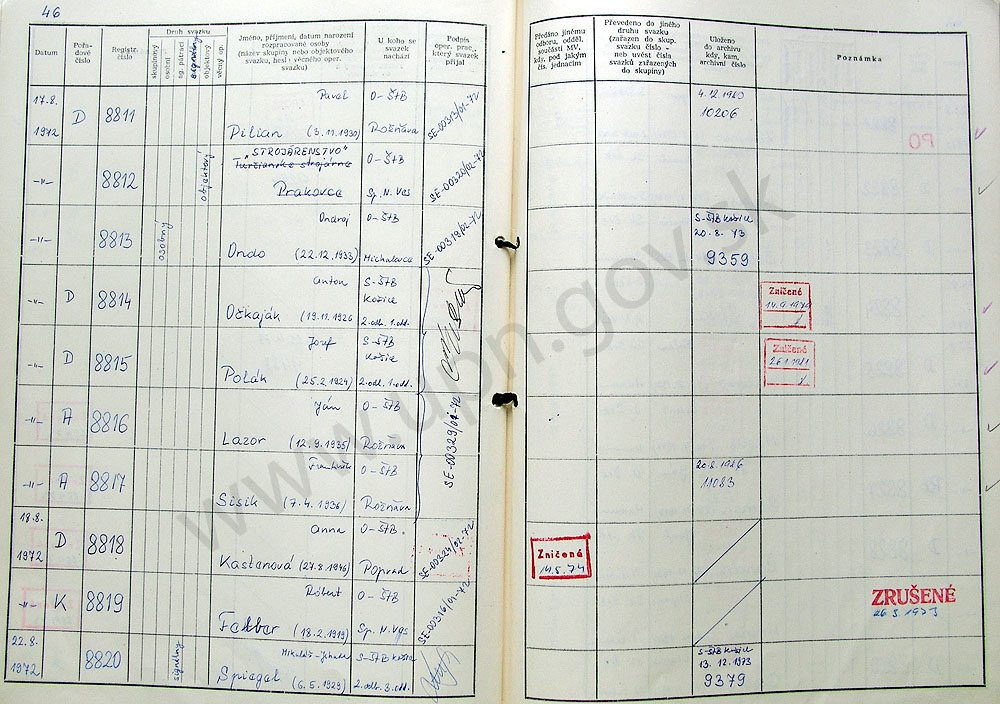 46
Datum
Pořadové číslo
Registr. číslo
Druh svazku
skupinový
osobní
sg. pátrací
signální
objektový
věcný op.
Jméno, příjmení, datum narození
rozpracované osoby
(název skupiny nebo objektového
svazku, heslo věcného oper.
svazku)
U koho se
svazek
nachází
Podpis
oper. prac.
který svazek
přijal
Předáno jinému
odboru, odděl.
součásti MV,
kdy, pod jakým
čís. jednacím
Převedeno do jiného
druhu svazku
(zařazen do skup.
svazku číslo -
neb uvést čísla
svazků zařazených
do skupiny)
Uloženo
do archivu
kdy, kam,
archivní číslo
Poznámka
17.8.
1972
D
8811
Pavel
Pilian (3.11.1930)
O-ŠtB
Rožňava
SE-00313/01-72
4.12.1980
10206
-"-
8812
objektový
"STROJÁRENSTVO"
Turčianske strojárne
Prakovce
O-ŠtB
Sp. N. Ves
SE-00320/02-72
-"-
8813
osobný
Ondrej
Ondo (22.12.1933)
O-ŠtB
Michalovce
SE-00319/02-72
S-ŠtB Košice
20.8.73
9359
-"-
D
8814
Anton
Očkaják (19.11.1926
S-ŠtB
Košice
2.odb. 1.odd.
Zničené
-"-
D
8815
Jozef
Polák (25.2.1924)
S-ŠtB
Košice
2.odd. 1.odd.
Zničené
26.1.1981
-"-
A
8816
Ján
Lazor (12.9.1935)
O-ŠtB
Rožňava
SE-00329/01-72
-"-
A
8817
František
Sisik (7.4.1936)
O-ŠtB
Rožňava
11083
18.8.
1972
D
8818
Anna
Kaštanová (27.8.1946)
O-ŠtB.
Poprad
SE-00324/02-72
Zničená
14.5.74
-"-
K
8819
Róbert
Felber (18.2.1919)
O-ŠtB
Sp. N. Ves
SE-00316/01-72
ZRUŠENÉ
26.3.1973
22.8.
1972
8820
signálny
Spiegel (6.5.1929)
S-ŠtB Košice
2.odb. 3.odd.
S-ŠtB Košice
13.12.1973
9379
www.upn.gov.sk